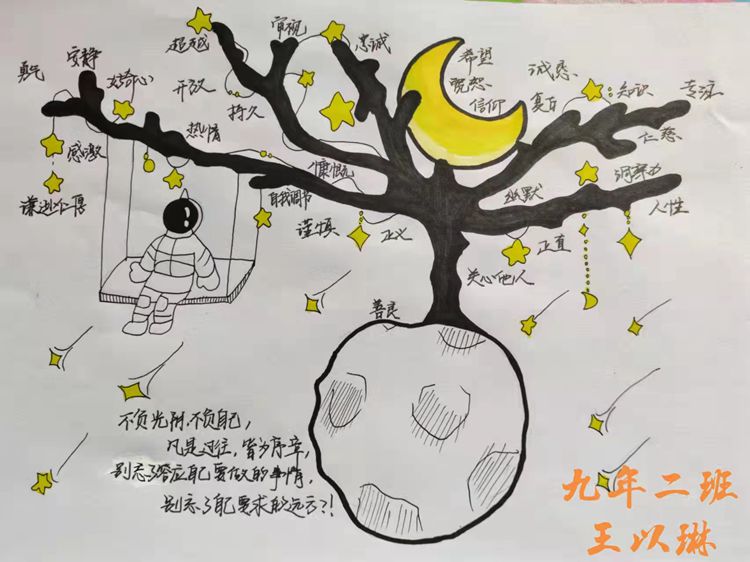 超越
审视
忠诚
希望
宽恕
信仰
诚恳
勇气
安静
好奇心
开放
持久
知识
专注
热情
感激
慷慨
仁慈
洞察力
谦逊
自我调节
幽默
人性
谨慎
正义
正直
关心他人
善良
不负光阴,不负自己,
凡是过往,皆为序章,
别忘了答应自己要做的事情,
别忘了自己要求的远方?!
九年二班
王以琳